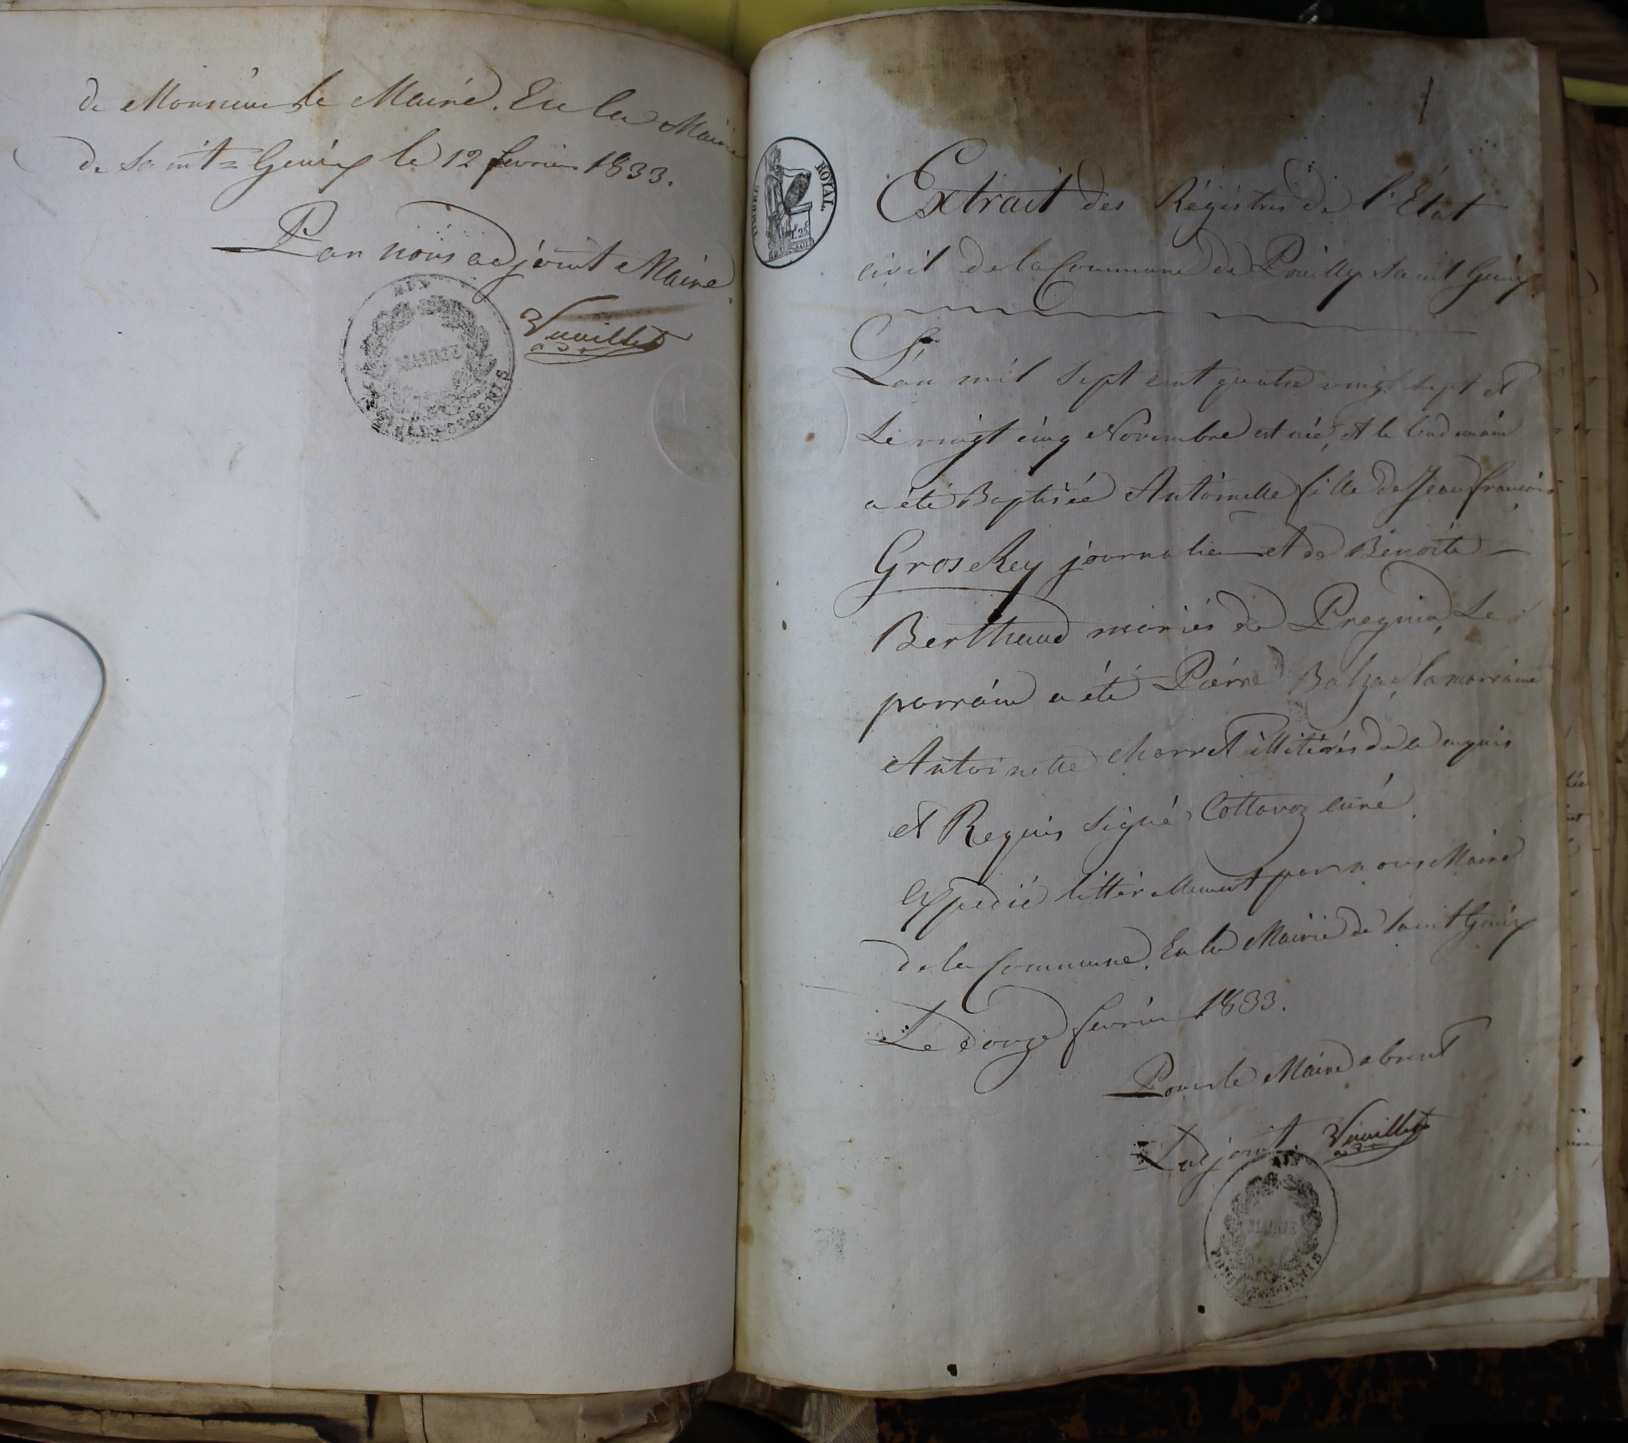 de Monsieur le Maire. En la Mairie
de Saint=Genix le 12 fevrier 1833.
Par nous adjoint Maire
Vuaillet
MAIRIE
TIMBRE ROYAL
1f 25
Extrait des Régistres de l'État
civil de la Commune de Pouilly Saint Genix
L'an mil sept cent quatre vingt sept et
Le vingt cinq Novembre est née, et le lendemain
a été Baptisée Antoinette fille de Jean françois
Gros Rey journalier et de Benoite
Berthaud mariés de Pregnin, Le
parrain a été Pierre Balzac, la marraine
Antoinette Charret illitérés de ce enquis
et Requis signé Cottavoz curé.
Expedié littérallement par nous Maire
de la Commune. En la Mairie de Saint Genix
Le douze fevrier 1833.
Pour le Maire absent
L'adjoint. Vuaillet
MAIRIE